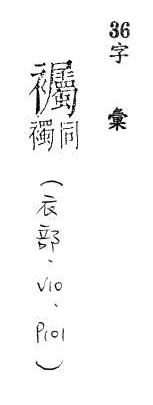 36字彙
同襡
（衣部、V10、P101）